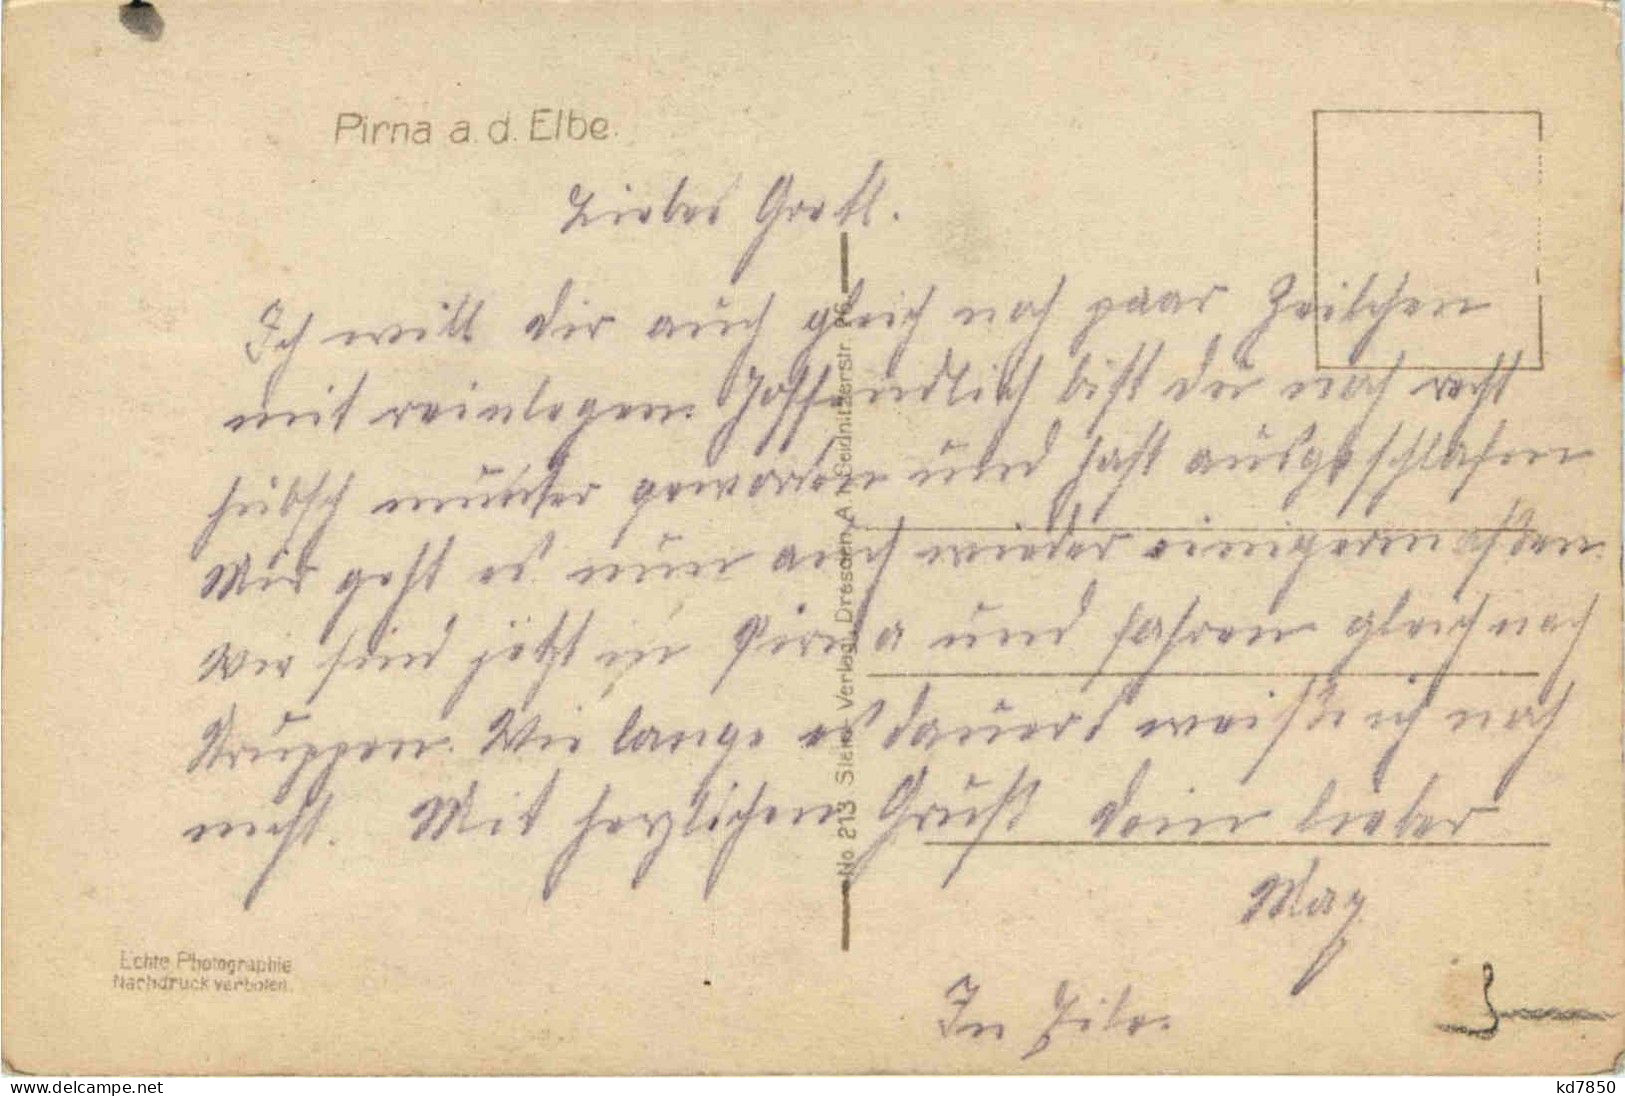 Pirna a. d. Elbe.
Liebes Gretl.
Ich will dir auch gleich noch paar Zeilchen
mit reinlegen. Hoffendlich bist du noch recht
hübsch munter geworden und hast ausgeschlafen
Mir geht es nun auch wieder einigermaßen.
Wir sind jetzt in Pirna und fahren gleich nach
Struppen. Wie lange es dauert weiß ich noch
nicht. Mit herzlichen Gruß dein lieber
Max
In Eile.
No 213 Verlag, Dresden A. Seidnitzerstr. 26
Echte Photographie
Nachdruck verboten.
delcampe.net
kd7850